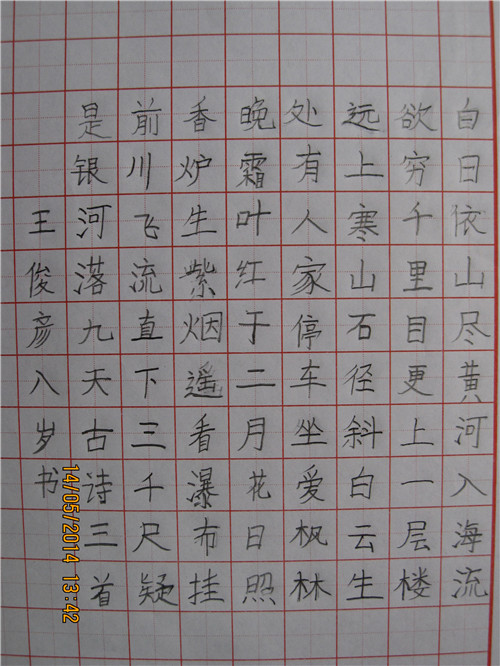 白日依山尽黄河入海流
欲穷千里目更上一层楼
远上寒山石径斜白云生
处有人家停车坐爱枫林
晚霜叶红于二月花日照
香炉生紫烟遥看瀑布挂
前川飞流直下三千尺疑
是银河落九天古诗三首
王俊彦八岁书
14/05/2014 13:42